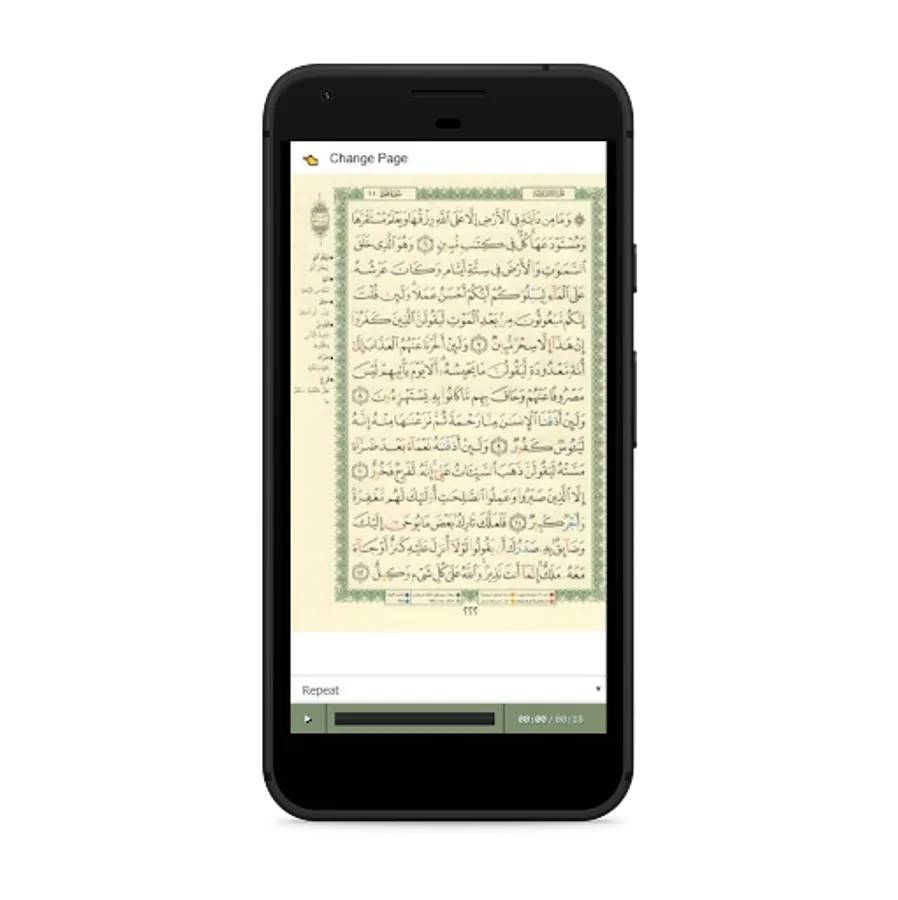 Change Page
سورة هود ١١
۞ وَمَا مِن دَآبَّةٍ فِي ٱلْأَرْضِ إِلَّا عَلَى ٱللَّهِ رِزْقُهَا وَيَعْلَمُ مُسْتَقَرَّهَا
وَمُسْتَوْدَعَهَا كُلٌّ فِي كِتَٰبٍ مُّبِينٍ ٦ وَهُوَ ٱلَّذِي خَلَقَ
ٱلسَّمَٰوَٰتِ وَٱلْأَرْضَ فِي سِتَّةِ أَيَّامٍ وَكَانَ عَرْشُهُۥ
عَلَى ٱلْمَآءِ لِيَبْلُوَكُمْ أَيُّكُمْ أَحْسَنُ عَمَلًا وَلَئِن قُلْتَ
إِنَّكُم مَّبْعُوثُونَ مِنۢ بَعْدِ ٱلْمَوْتِ لَيَقُولَنَّ ٱلَّذِينَ كَفَرُوٓا۟
إِنْ هَٰذَآ إِلَّا سِحْرٌ مُّبِينٌ ٧ وَلَئِنْ أَخَّرْنَا عَنْهُمُ ٱلْعَذَابَ إِلَىٰٓ
أُمَّةٍ مَّعْدُودَةٍ لَّيَقُولُنَّ مَا يَحْبِسُهُۥٓ أَلَا يَوْمَ يَأْتِيهِمْ لَيْسَ
مَصْرُوفًا عَنْهُمْ وَحَاقَ بِهِم مَّا كَانُوا۟ بِهِۦ يَسْتَهْزِءُونَ ٨
وَلَئِنْ أَذَقْنَا ٱلْإِنسَٰنَ مِنَّا رَحْمَةً ثُمَّ نَزَعْنَٰهَا مِنْهُ إِنَّهُۥ
لَيَـُٔوسٌ كَفُورٌ ٩ وَلَئِنْ أَذَقْنَٰهُ نَعْمَآءَ بَعْدَ ضَرَّآءَ
مَسَّتْهُ لَيَقُولَنَّ ذَهَبَ ٱلسَّيِّـَٔاتُ عَنِّيٓ إِنَّهُۥ لَفَرِحٌ فَخُورٌ ١٠
إِلَّا ٱلَّذِينَ صَبَرُوا۟ وَعَمِلُوا۟ ٱلصَّٰلِحَٰتِ أُو۟لَٰٓئِكَ لَهُم مَّغْفِرَةٌ
وَأَجْرٌ كَبِيرٌ ١١ فَلَعَلَّكَ تَارِكٌۢ بَعْضَ مَا يُوحَىٰٓ إِلَيْكَ
وَضَآئِقٌۢ بِهِۦ صَدْرُكَ أَن يَقُولُوا۟ لَوْلَآ أُنزِلَ عَلَيْهِ كَنزٌ أَوْ جَآءَ
مَعَهُۥ مَلَكٌ إِنَّمَآ أَنتَ نَذِيرٌ وَٱللَّهُ عَلَىٰ كُلِّ شَىْءٍ وَكِيلٌ ١٢
٢٢٢
Repeat
00:00 / 00:18